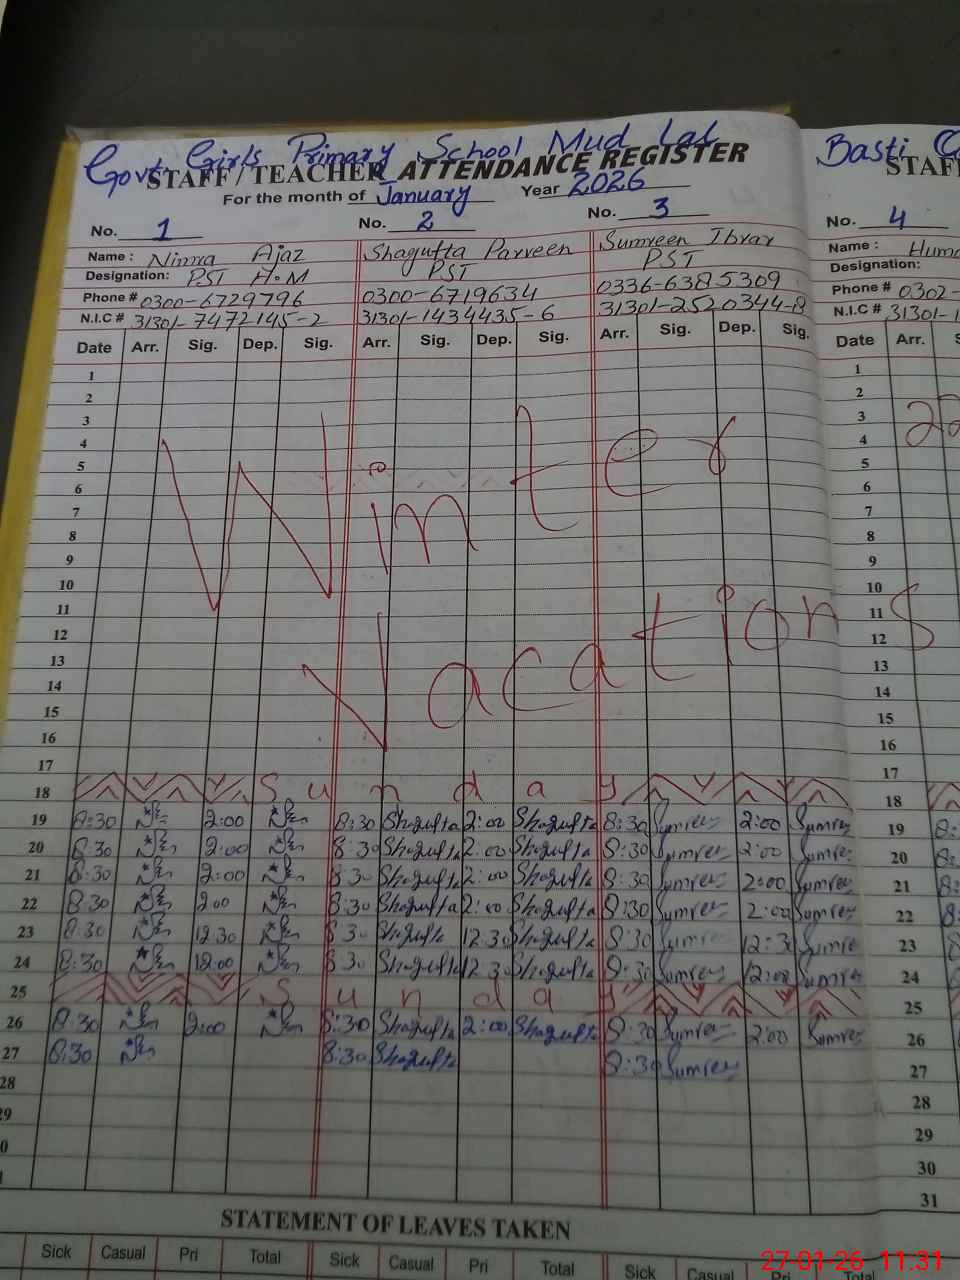 Govt Girls Primary School Mud Lal Basti
STAFF / TEACHER ATTENDANCE REGISTER STAFF
For the month of January Year 2026
No. 1 No. 2 No. 3 No. 4
Name : Nimra Ajaz Shagufta Parveen Sumreen Ibrar Name :
Designation: PST H.M PST PST Designation:
Phone # 0300-6729796 0300-6719634 0336-6385309 Phone # 0302-
N.I.C # 31301-7472145-2 31301-1434435-6 31301-2520344-8 N.I.C # 31301-1
Date Arr. Sig. Dep. Sig. Arr. Sig. Dep. Sig. Arr. Sig. Dep. Sig. Date Arr.
1 1
2 2
3 3
4 4
5 5
6 6
7 7
8 8
9 9
10 10
11 11
12 12
13 13
14 14
15 15
16 16
17 17
Winter
Vacations
18 Sunday 18
19 8:30 2:00 8:30 Shagufta 2:00 Shagufta 8:30 Sumreen 2:00 Sumreen 19
20 8:30 2:00 8:30 Shagufta 2:00 Shagufta 8:30 Sumreen 2:00 Sumreen 20
21 8:30 2:00 8:30 Shagufta 2:00 Shagufta 8:30 Sumreen 2:00 Sumreen 21
22 8:30 2:00 8:30 Shagufta 2:00 Shagufta 8:30 Sumreen 2:00 Sumreen 22
23 8:30 12:30 8:30 Shagufta 12:30 Shagufta 8:30 Sumreen 12:30 Sumreen 23
24 8:30 12:00 8:30 Shagufta 12:30 Shagufta 8:30 Sumreen 12:00 Sumreen 24
25 Sunday 25
26 8:30 2:00 8:30 Shagufta 2:00 Shagufta 8:30 Sumreen 2:00 Sumreen 26
27 8:30 8:30 Shagufta 8:30 Sumreen 27
28 28
29 29
30
31
STATEMENT OF LEAVES TAKEN
Sick Casual Pri Total Sick Casual Pri Total Sick Casual Pri Total
27-01-26 11:31